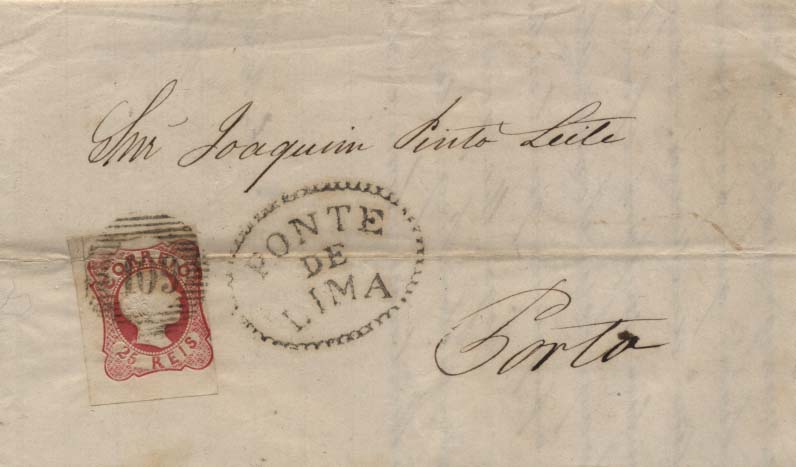 Snr Joaquim Pinto Leite
PONTE
DE
LIMA
CORREIO
25 REIS
Porto